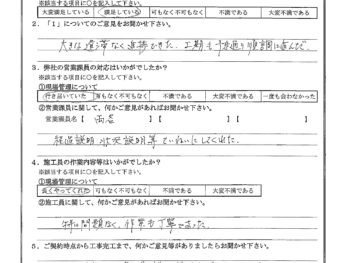 ※該当する項目に○を記入して下さい。
大変満足している 満足している 可もなく不可もなく 不満である 大変不満である
2. 「1」についてのご意見をお聞かせ下さい。
大きな遅れなく進捗できた。工期も予定通り順調に進んだ。
3. 弊社の営業課員の対応はいかがでしたか？
※該当する項目に○を記入して下さい。
①現場管理について
行き届いていた 可もなく不可もなく 不満である 大変不満である 一度も会わなかった
②営業課員に関して、何かご意見があればお聞かせ下さい。
営業課員名【 】【 】【 】
経過説明 状況説明等ていねいにしてくれた。
4. 施工員の作業内容等はいかがでしたか？
※該当する項目に○を記入して下さい。
①現場管理について
良くやってくれた 可もなく不可もなく 不満である 大変不満である
②施工員に関して、何かご意見があればお聞かせ下さい。
特に問題なく、作業も丁寧でした。
5. ご契約時点から工事完工まで、何かご意見等がありましたらお聞かせ下さい。